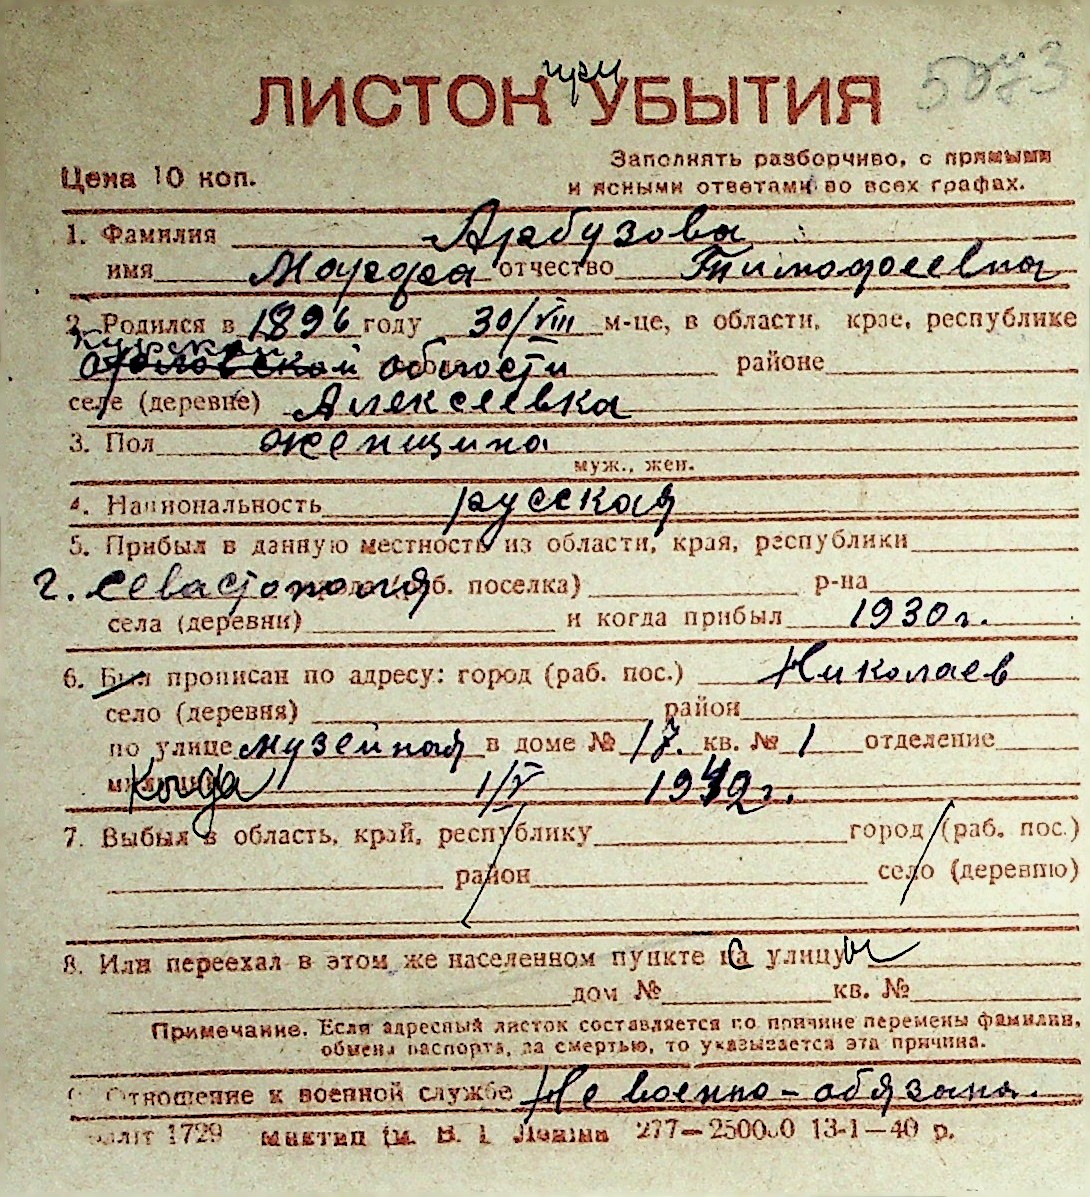 5073
при
ЛИСТОК УБЫТИЯ
Цена 10 коп.
Заполнять разборчиво, с прямыми
и ясными ответами во всех графах.
1. Фамилия Арбузова
имя Марфа отчество Тимофеевна
2. Родился в 1896 году 30/VIII м-це, в области, крае, республике
Курской
Орловской области районе
селе (деревне) Алексеевка
3. Пол женщина
муж., жен.
4. Национальность русская
5. Прибыл в данную местность из области, края, республики
г. Севастополя (раб. поселка) р-на
села (деревни) и когда прибыл 1930 г.
6. Был прописан по адресу: город (раб. пос.) Николаев
село (деревня) район
по улице музейная в доме № 17. кв. № 1 отделение
Когда 1/V 1942 г.
7. Выбыл в область, край, республику город (раб. пос.)
район село (деревню)
8. Или переехал в этом же населенном пункте с улицы
дом № кв. №
Примечание. Если адресный листок составляется по причине перемены фамилии,
обмена паспорта, за смертью, то указывается эта причина.
Отношение к военной службе Не военно-обязана.
1729 277—250000 13-1—40 р.